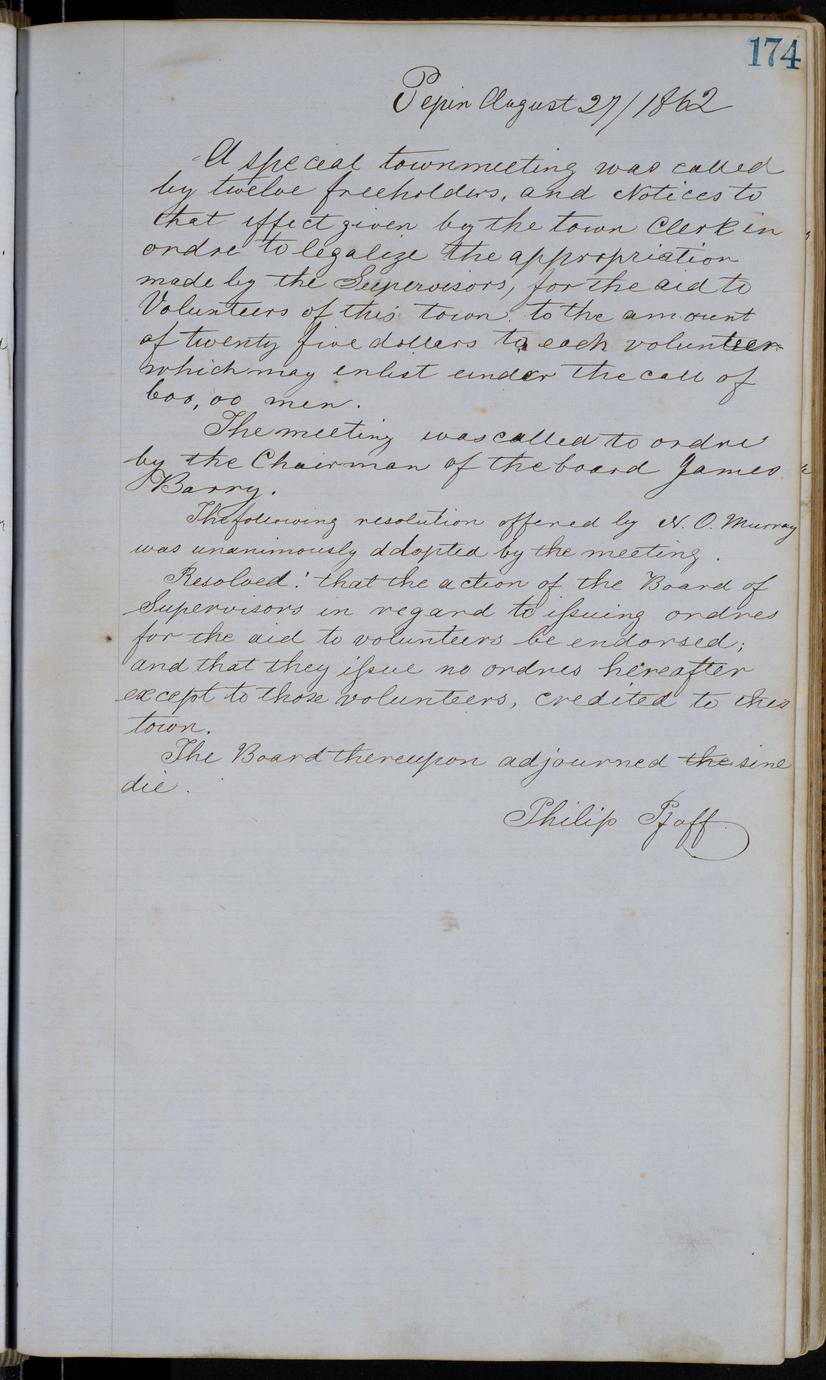 174
Pepin August 27/1862
A special townmeeting was called
by twelve freeholders, and Notices to
that effect given by the town Clerk in
ordre to legalize the appropriation
made by the Supervisors, for the aid to
Volunteers of this town to the amount
of twenty five dollars to each volunteer
which may enlist under the call of
600,00 men.
The meeting was called to ordre
by the Chairman of the board James
Barry.
The folowing resolution offered by N. O. Murray
was unanimously adopted by the meeting.
Resolved: that the action of the Board of
Supervisors in regard to issuing ordres
for the aid to volunteers be endorsed;
and that they issue no ordres hereafter
except to those volunteers, credited to this
town.
The Board thereupon adjourned the sine
die.
Philip Pfaff